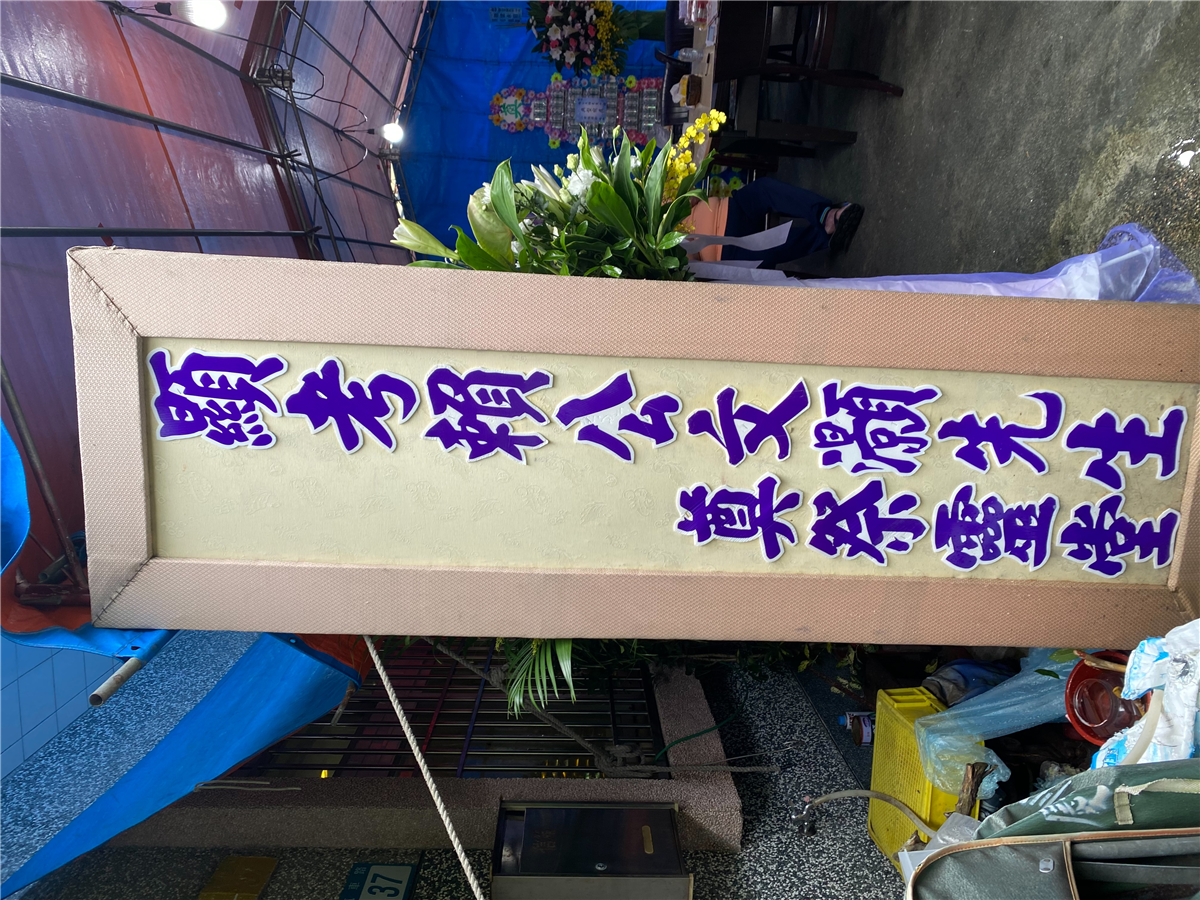 顯考賴公文灝先生
奠祭靈堂
37
奠